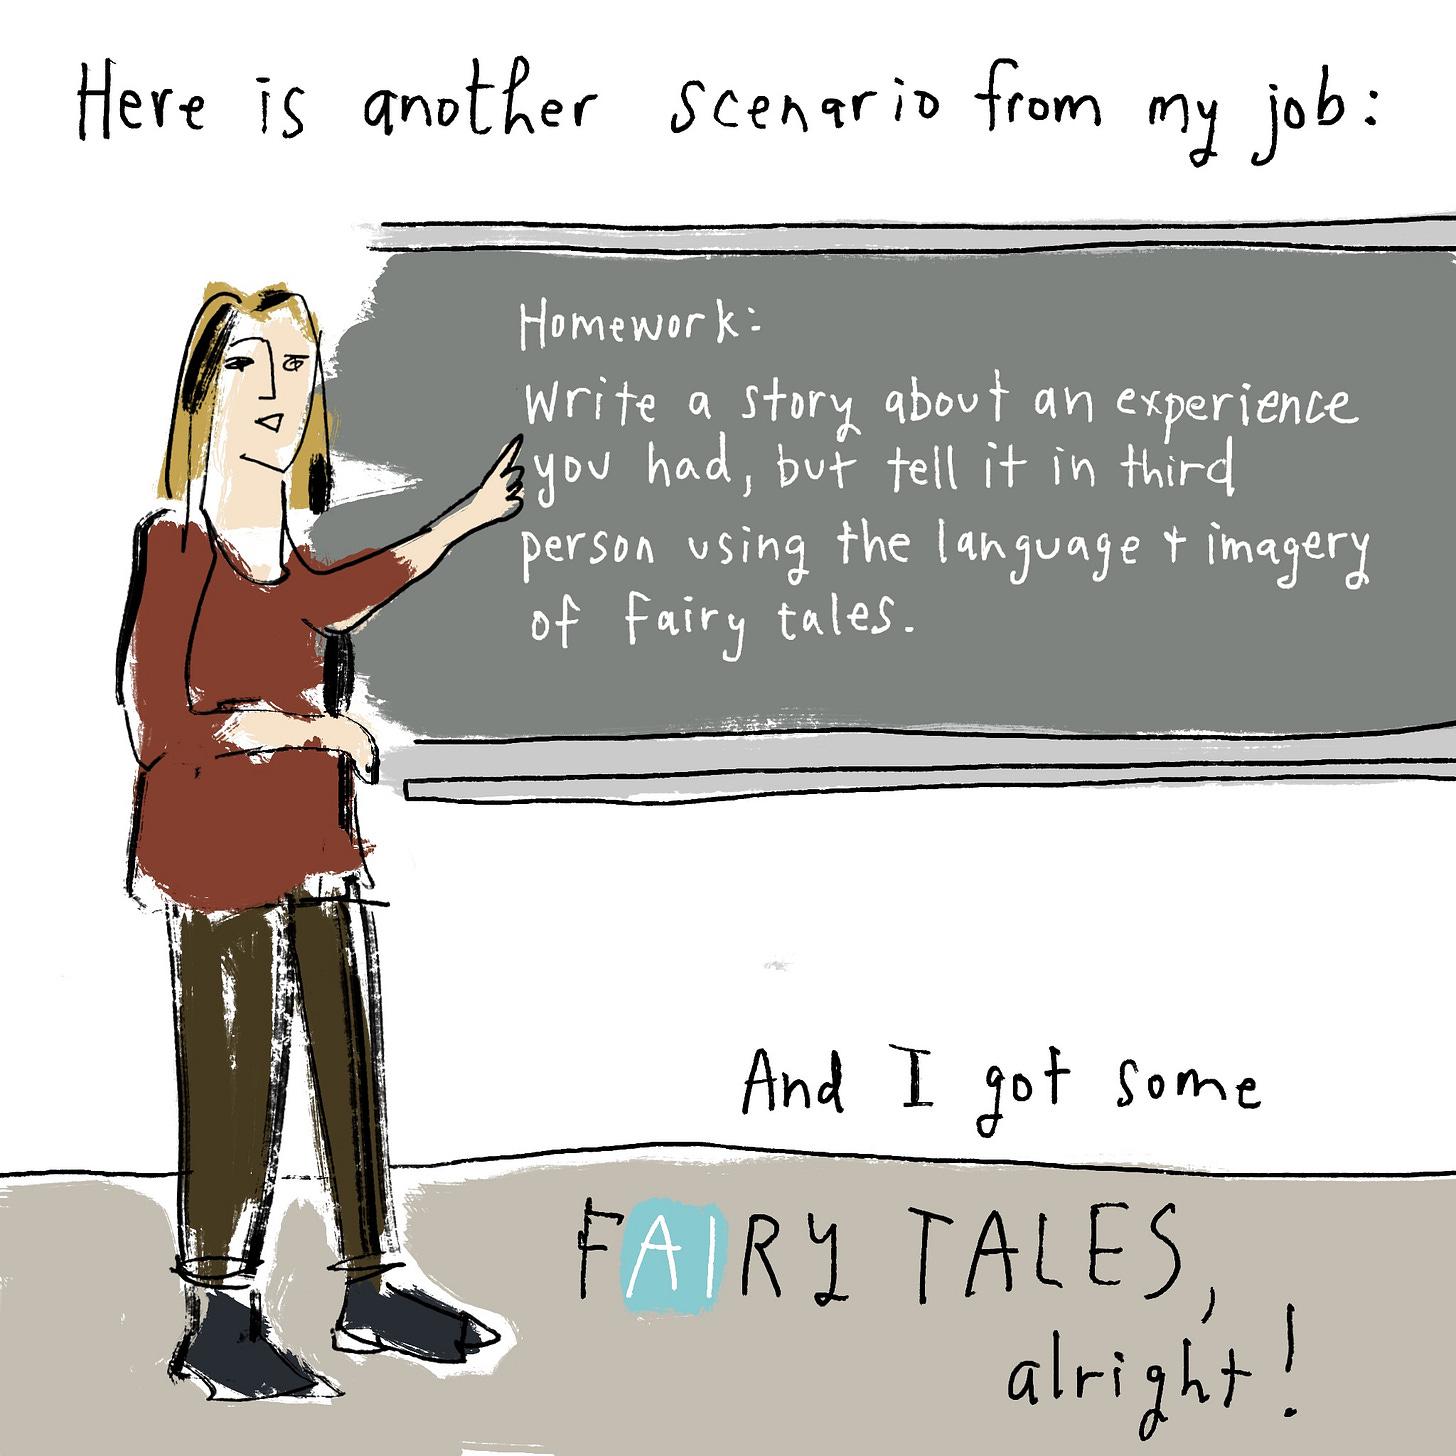 Here is another scenario from my job:
Homework:
Write a story about an experience
you had, but tell it in third
person using the language + imagery
of fairy tales.
And I got some
FAIRY TALES,
alright!